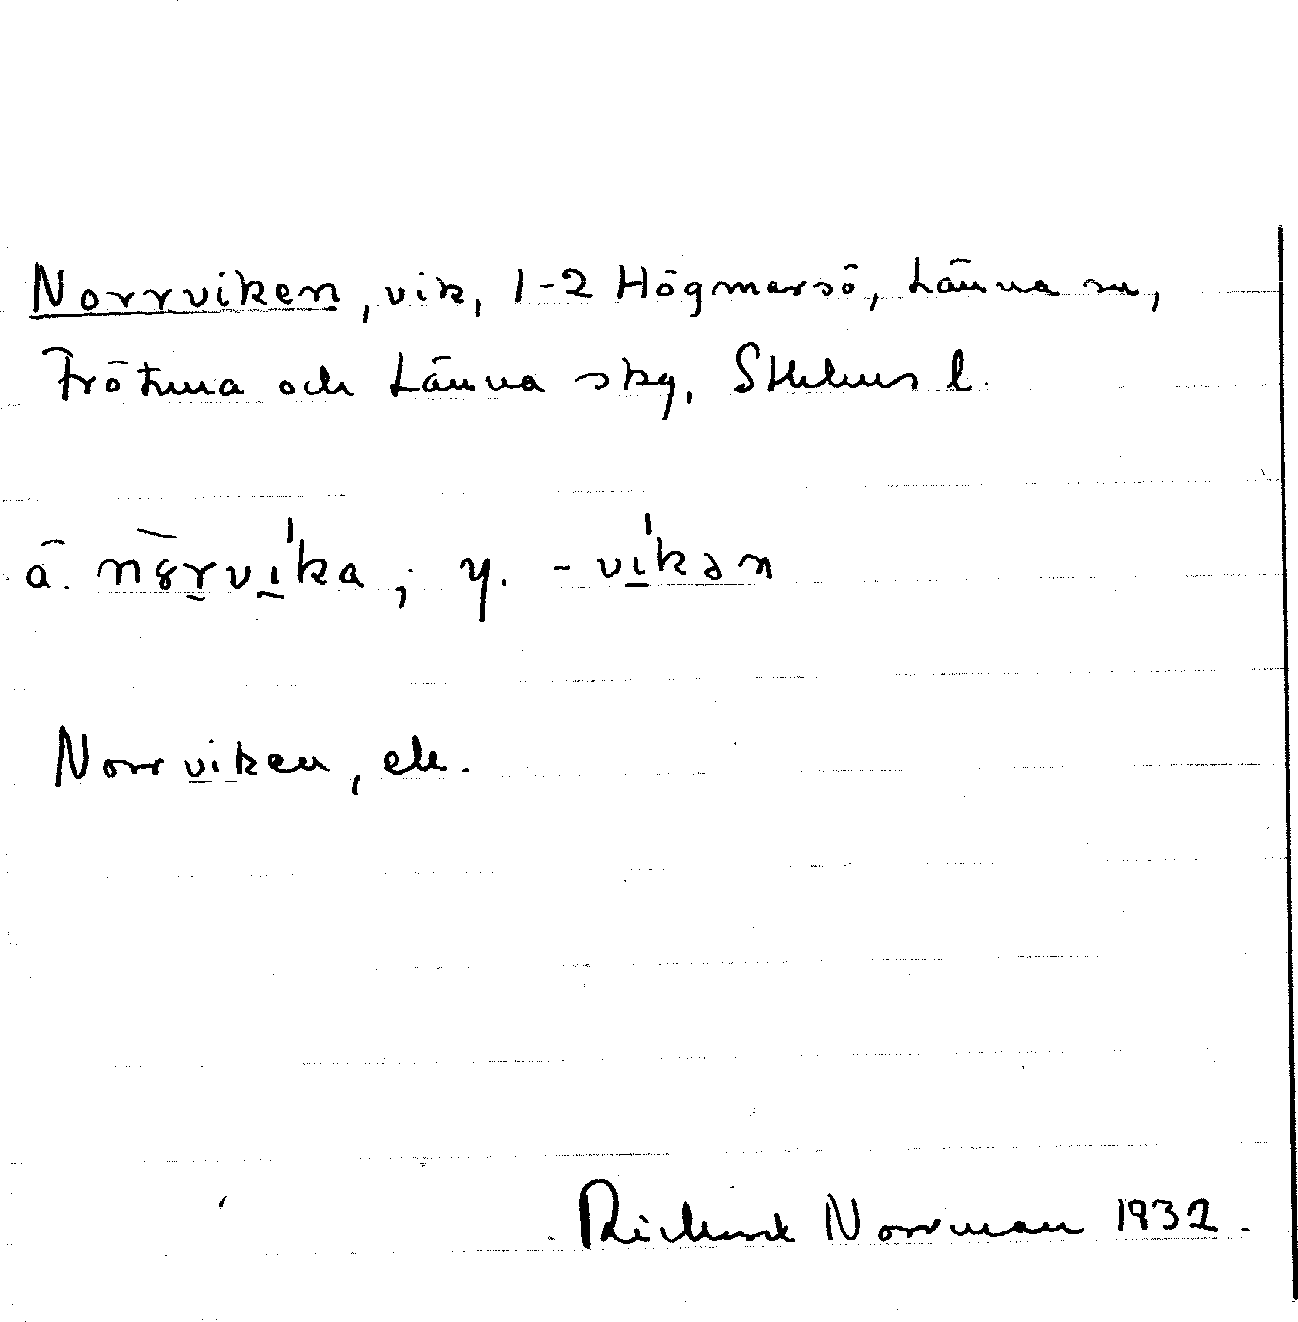 Norrviken, vik, 1-2 Högmarsö, Länna sn,
Frötuna och Länna skg, Sthlms l.
ä. nȣrvi̱ka, y. -vi̱kən
Norrviken, ek.
Richard Norrman 1932.